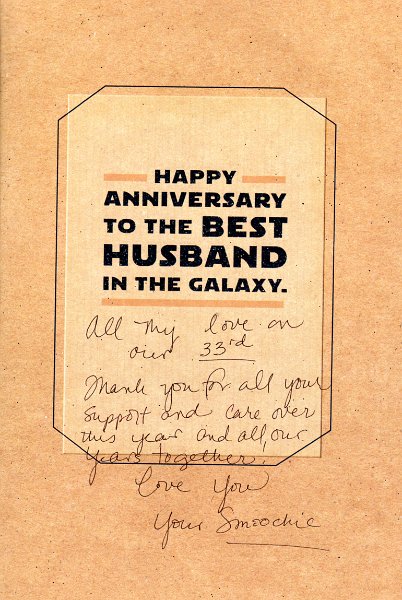 HAPPY
ANNIVERSARY
TO THE BEST
HUSBAND
IN THE GALAXY.
All my love on
our 33rd
Thank you for all your
support and care over
this year and all our
years together.
Love You
Your Smoochie